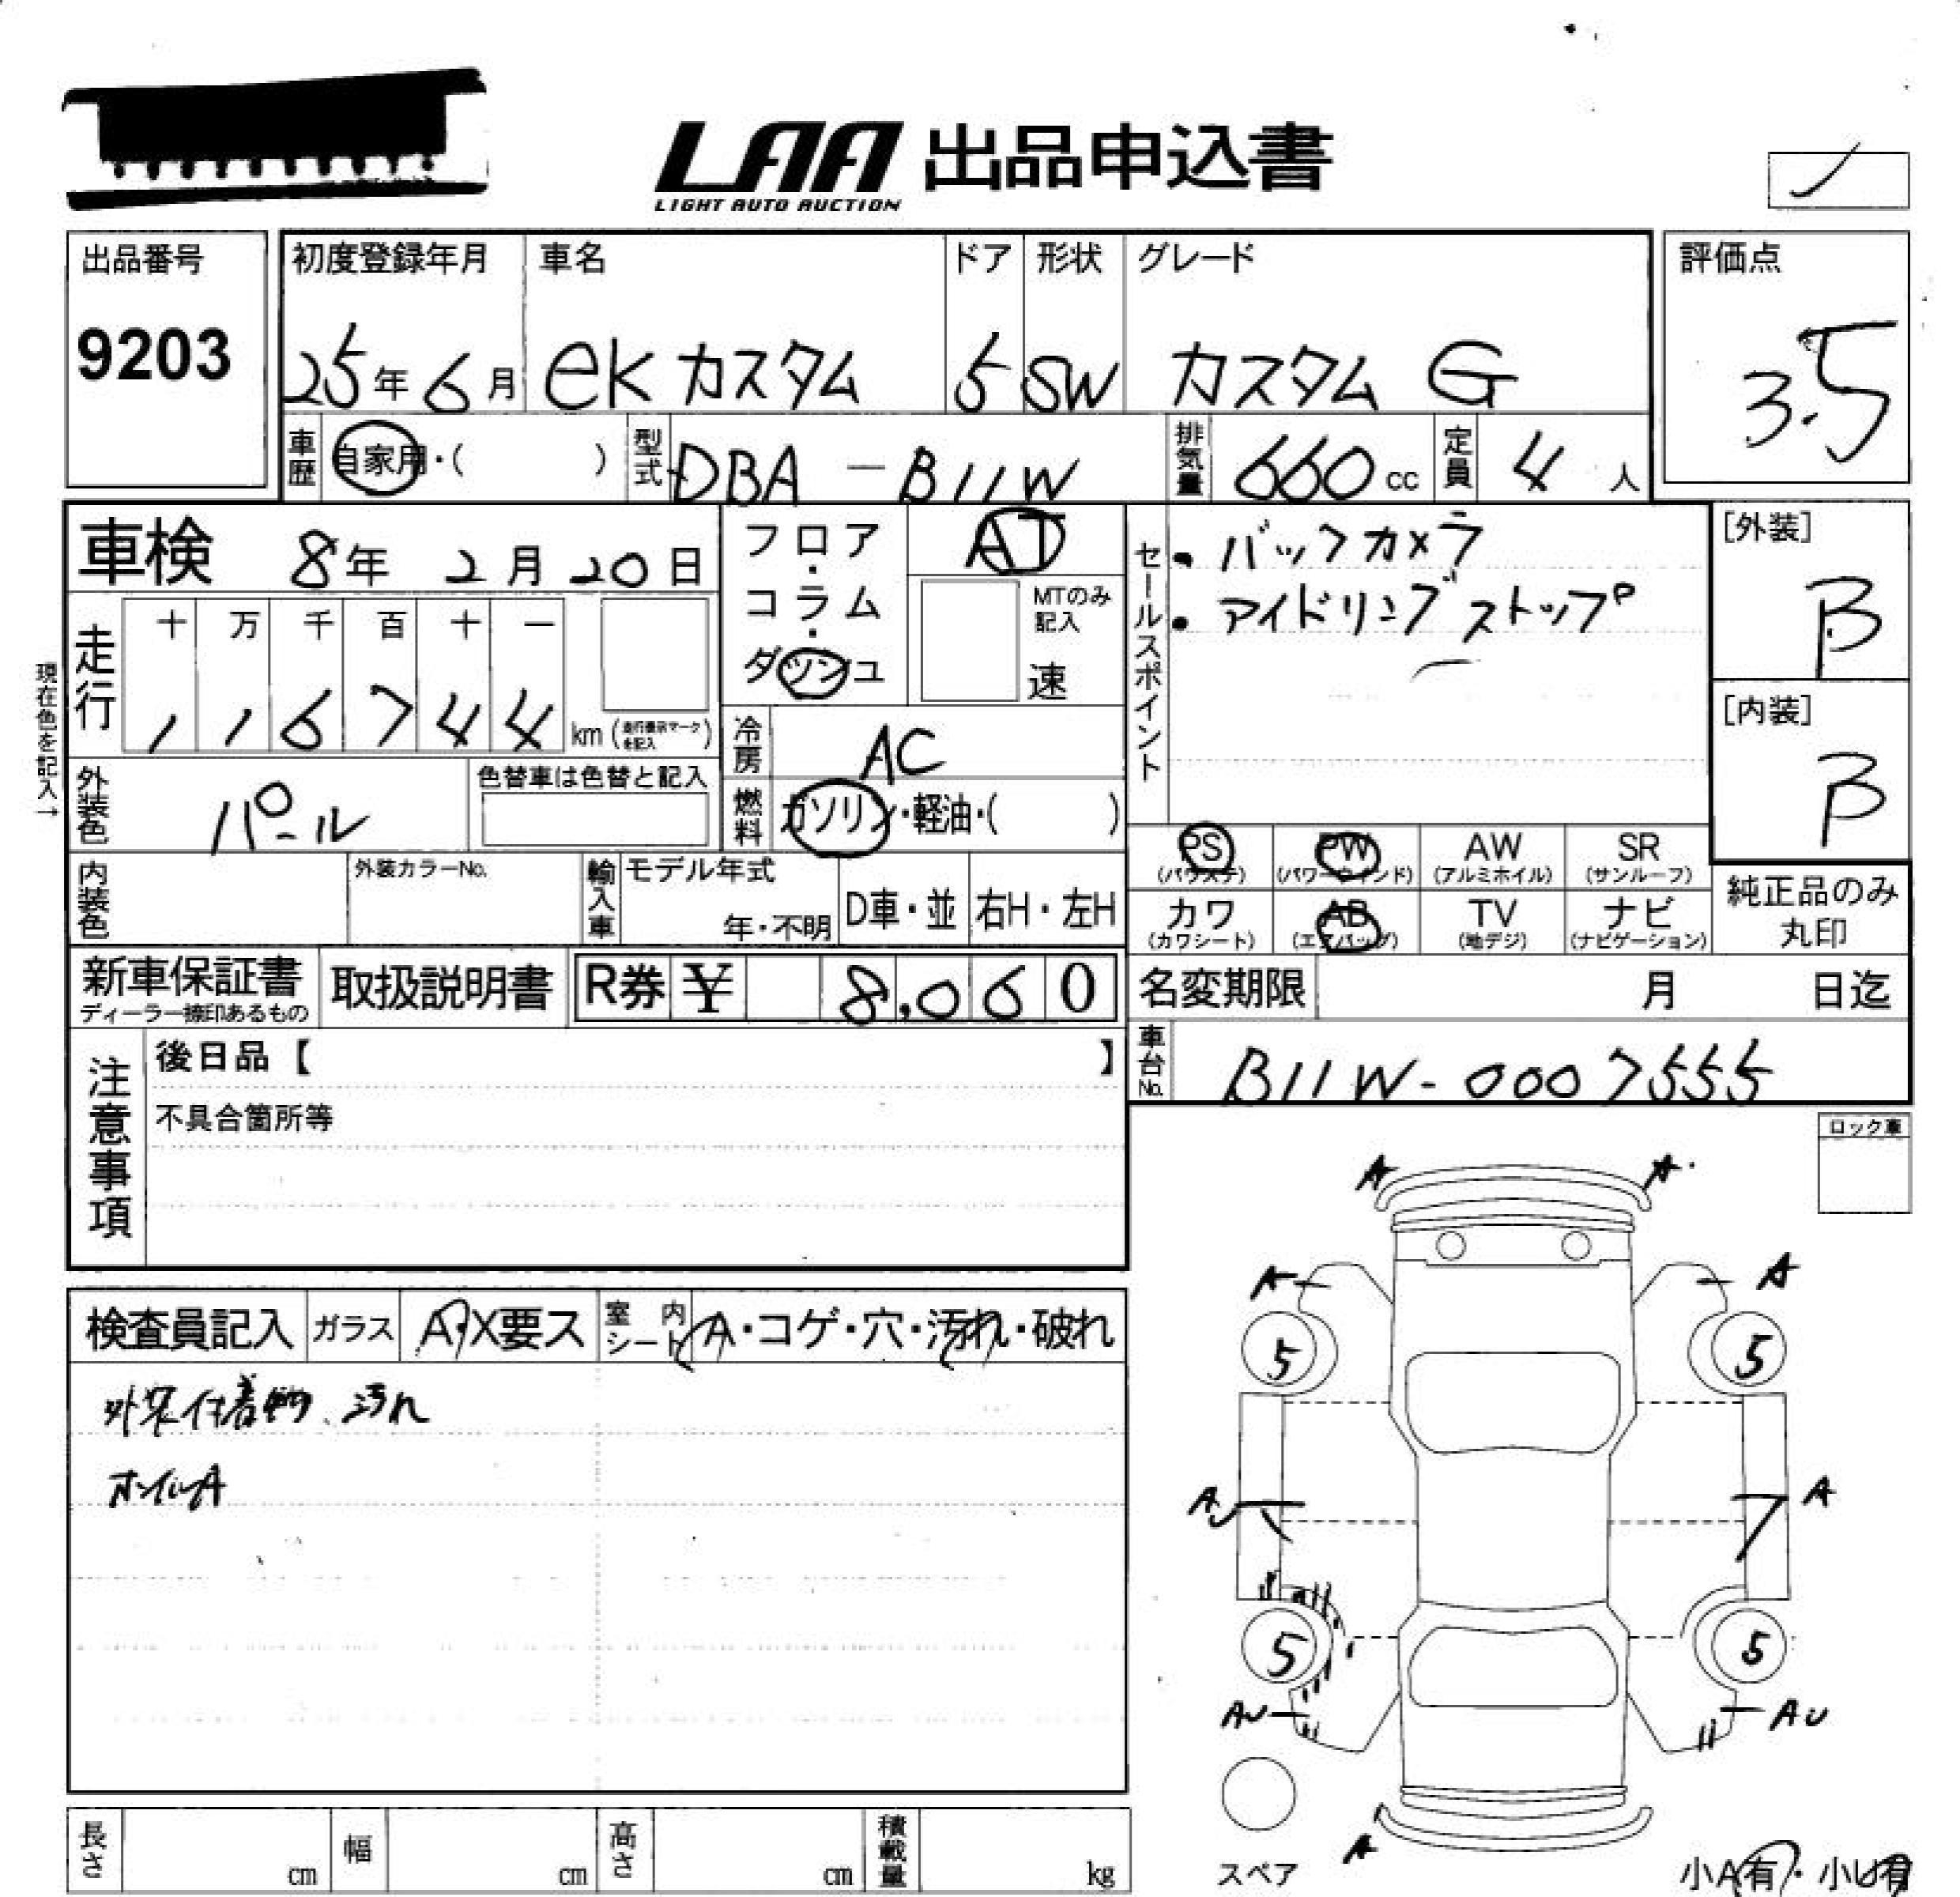 LAA 出品申込書
LIGHT AUTO AUCTION
出品番号
9203
初度登録年月
25年6月
車名
eK カスタム
ドア
5
形状
SW
グレード
カスタム G
評価点
3.5
車歴
自家用・( )
型式
DBA－B11W
排気量
660 cc
定員
4 人
車検 8年 2月 20日
フロア・コラム・ダッシュ
AT
MTのみ記入
速
セールスポイント
・バックカメラ
・アイドリングストップ
[外装]
B
[内装]
B
現在色を記入→
走行
十 万 千 百 十 一
1 1 6 7 4 4 km (走行表示マークを記入)
冷房
AC
外装色
パール
色替車は色替と記入
燃料
ガソリン・軽油・( )
PS
(パワステ)
PW
(パワーウインド)
AW
(アルミホイル)
SR
(サンルーフ)
カワ
(カワシート)
AB
(エアバッグ)
TV
(地デジ)
ナビ
(ナビゲーション)
純正品のみ
丸印
内装色
外装カラーNo.
輸入車
モデル年式
年・不明
D車・並
右H・左H
新車保証書
ディーラー捺印あるもの
取扱説明書
R券 ¥ 8,060
名変期限 月 日迄
車台No.
B11W-0007555
注意事項
後日品【 】
不具合箇所等
ロック車
検査員記入
ガラス
A・X要ス
室内シート
A・コゲ・穴・汚れ・破れ
外装付着物、汚れ
ホイルA
A
A
A
A
5
5
A
A
5
5
AU
AU
A
スペア
小A有・小U有
長さ cm
幅 cm
高さ cm
積載量 kg